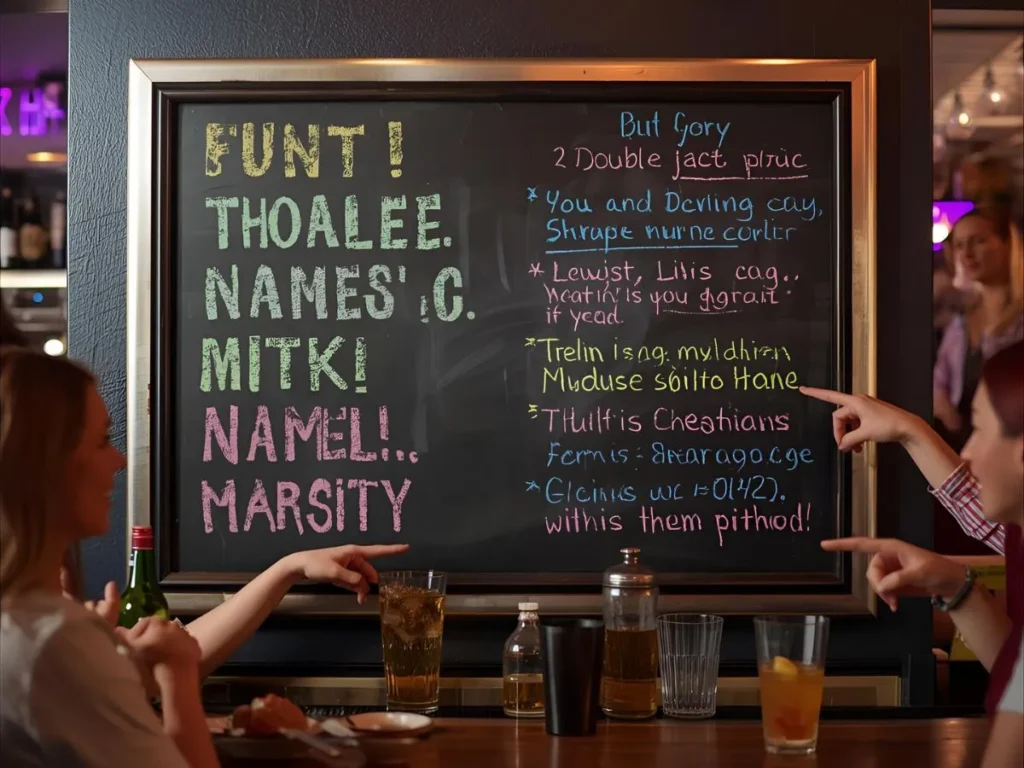 FUNT!
THOALEE.
NAMES' !C.
MITK!
NAMEL!..
MARSITY
But Gory
2 Double jact ptric
* You and Dcvling cay,
Shrape nurne corlir
* Lewist, Lilis cag..
you
if yead.
*Trelin isag. myldhien
Muduse sòilto Hane
THulfis Cheathians
Fcrnis:
* Glcinis
withis them pithiod!